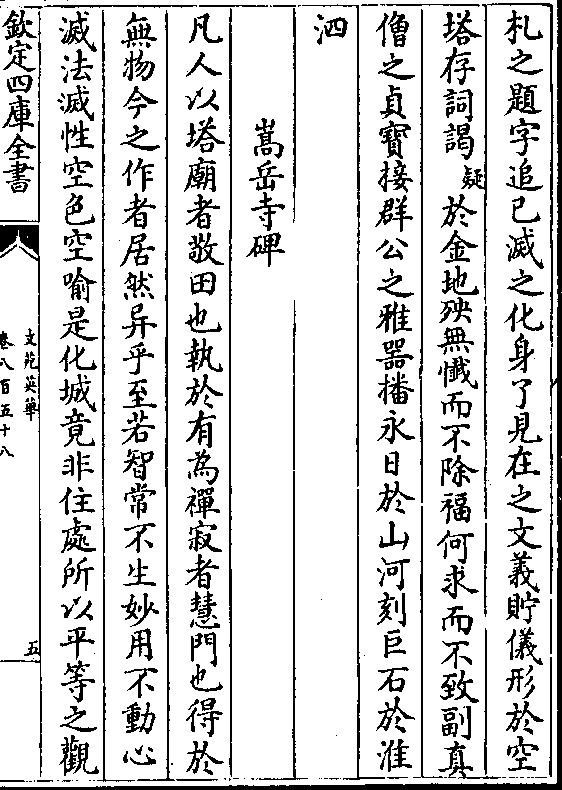 札之題字追已滅之化身了見在之文義貯儀形於空
塔存詞謁疑於金地殃無懺而不除福何求而不致副真
僧之貞寶接群公之雅器播永日於山河刻巨石於淮
泗
嵩岳寺碑
凡人以塔廟者敬田也執於有為禪寂者慧門也得於
無物今之作者居然异乎至若智常不生妙用不動心
滅法滅性空色空喻是化城竟非住處所以平等之觀
欽定四庫全書
文苑英華
卷八百五十八
五